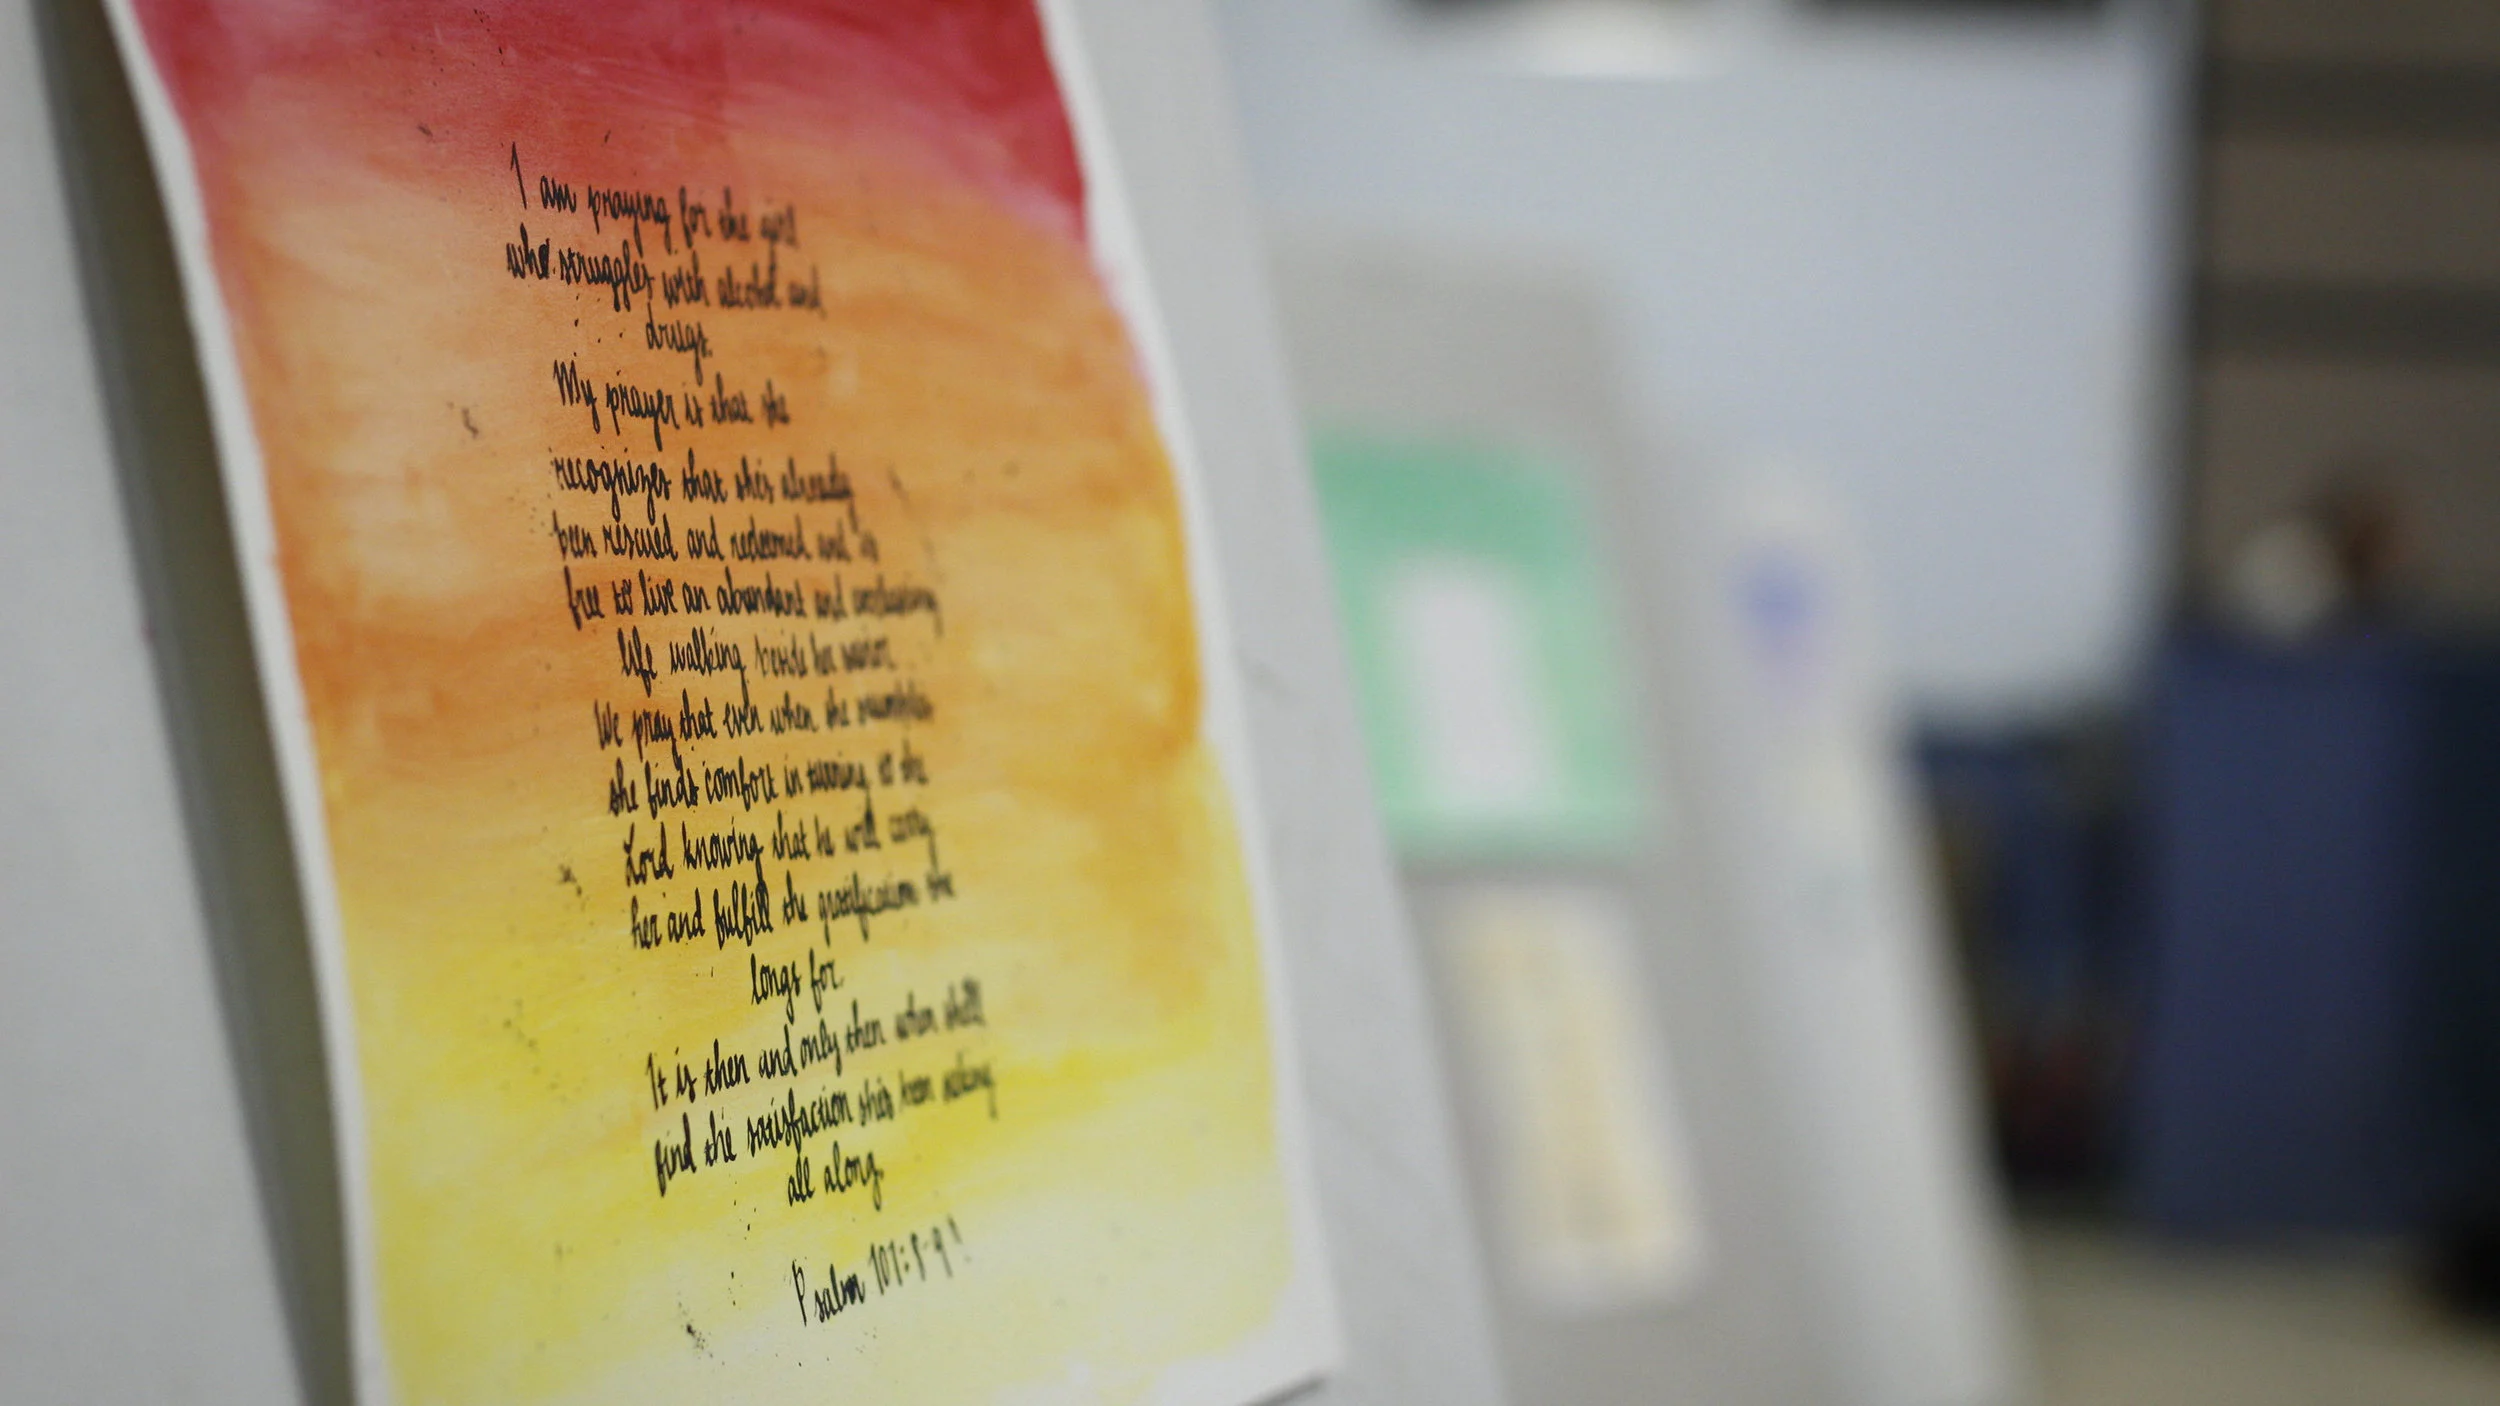 I am praying for the girl
who struggles with alcohol and
drugs.
My prayer is that she
recognizes that she's already
been rescued and redeemed and is
free to live an abundant and everlasting
life walking beside her savior.
We pray that even when she stumbles
she finds comfort in turning to the
Lord knowing that he will carry
her and fulfill the gratification she
longs for.
It is then and only then when she'll
find the satisfaction she's been seeking
all along.
Psalm 107:8-9!